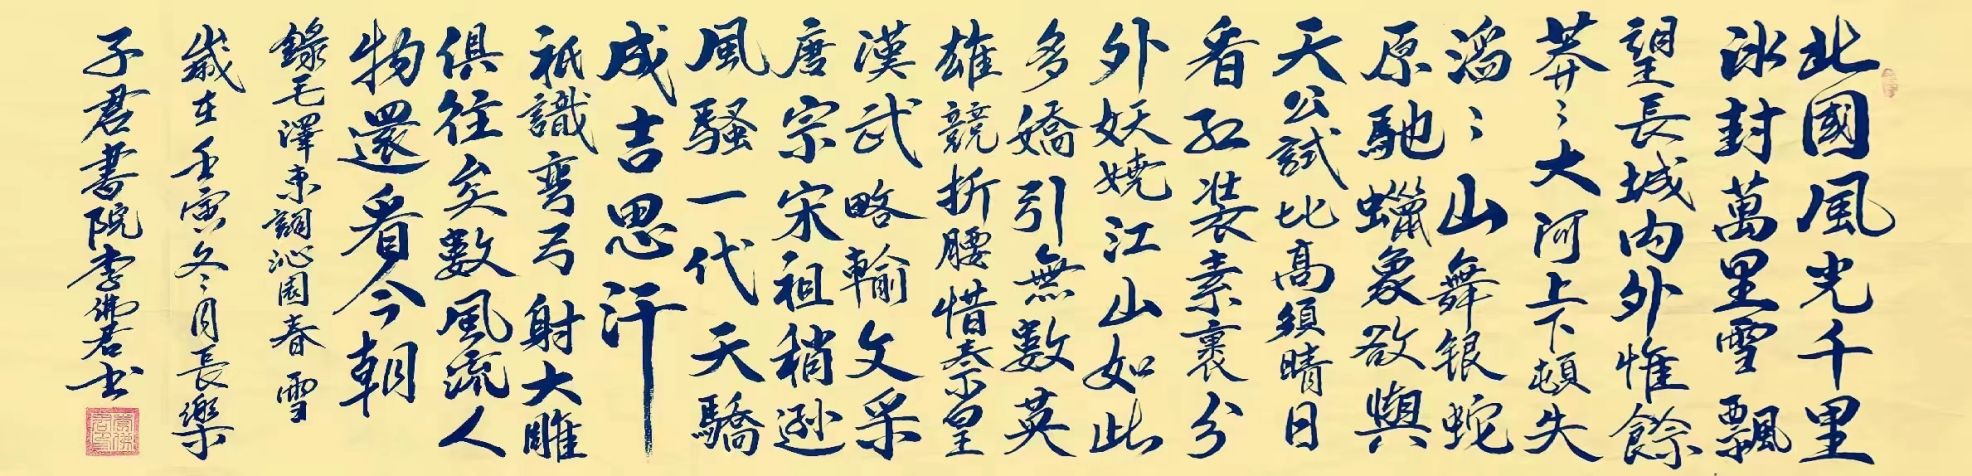 北國風光千里
冰封萬里雪飄
望長城内外惟餘
莽〻大河上下頓失
滔〻山舞银蛇
原馳蠟象欲與
天公試比高須晴日
看红装素裹分
外妖嬈江山如此
多嬌引無數英
雄競折腰惜秦皇
漢武略輸文采
唐宗宋祖稍遜
風騷一代天驕
成吉思汗
祇識彎弓射大雕
俱往矣數風流人
物還看今朝
錄毛澤東詞沁園春雪
歲在壬寅冬月長樂
子君書院李佛君书